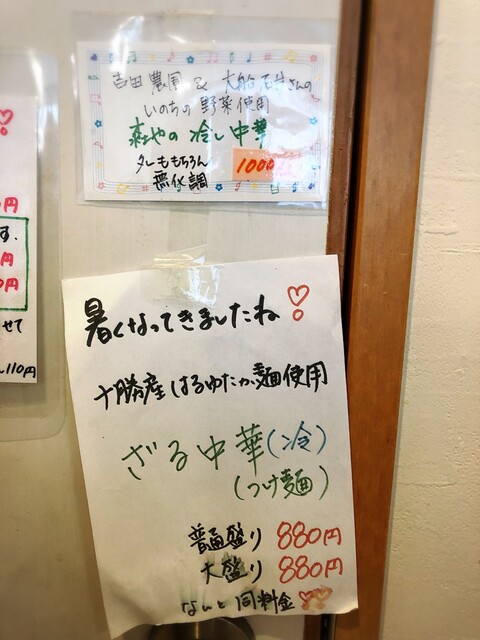 吉田農園 & 大船
いのちの野菜使用
の 冷し中華
タレももちろん 1000
無化調
暑くなってきましたね
十勝産はるゆたか麺使用
ざる中華(冷)
(つけ麺)
普通盛り 880円
大盛り 880円
なんと同料金
円
す.
円
0円
せて
110円